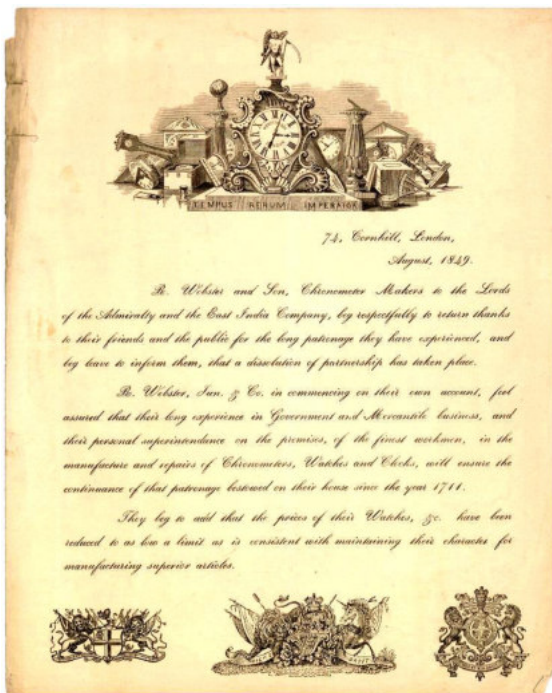 TEMPUS RERUM IMPERATOR
74, Cornhill, London,
August, 1849.
R. Webster and Son, Chronometer Makers to the Lords
of the Admiralty and the East India Company, beg respectfully to return thanks
to their friends and the public for the long patronage they have experienced, and
beg leave to inform them, that a dissolution of partnership has taken place.
R. Webster, Jun. & Co. in commencing on their own account, feel
assured that their long experience in Government and Mercantile business, and
their personal superintendance on the premises, of the finest workmen, in the
manufacture and repairs of Chronometers, Watches and Clocks, will ensure the
continuance of that patronage bestowed on their house since the year 1711.
They beg to add that the prices of their Watches, &c. have been
reduced to as low a limit as is consistent with maintaining their character for
manufacturing superior articles.